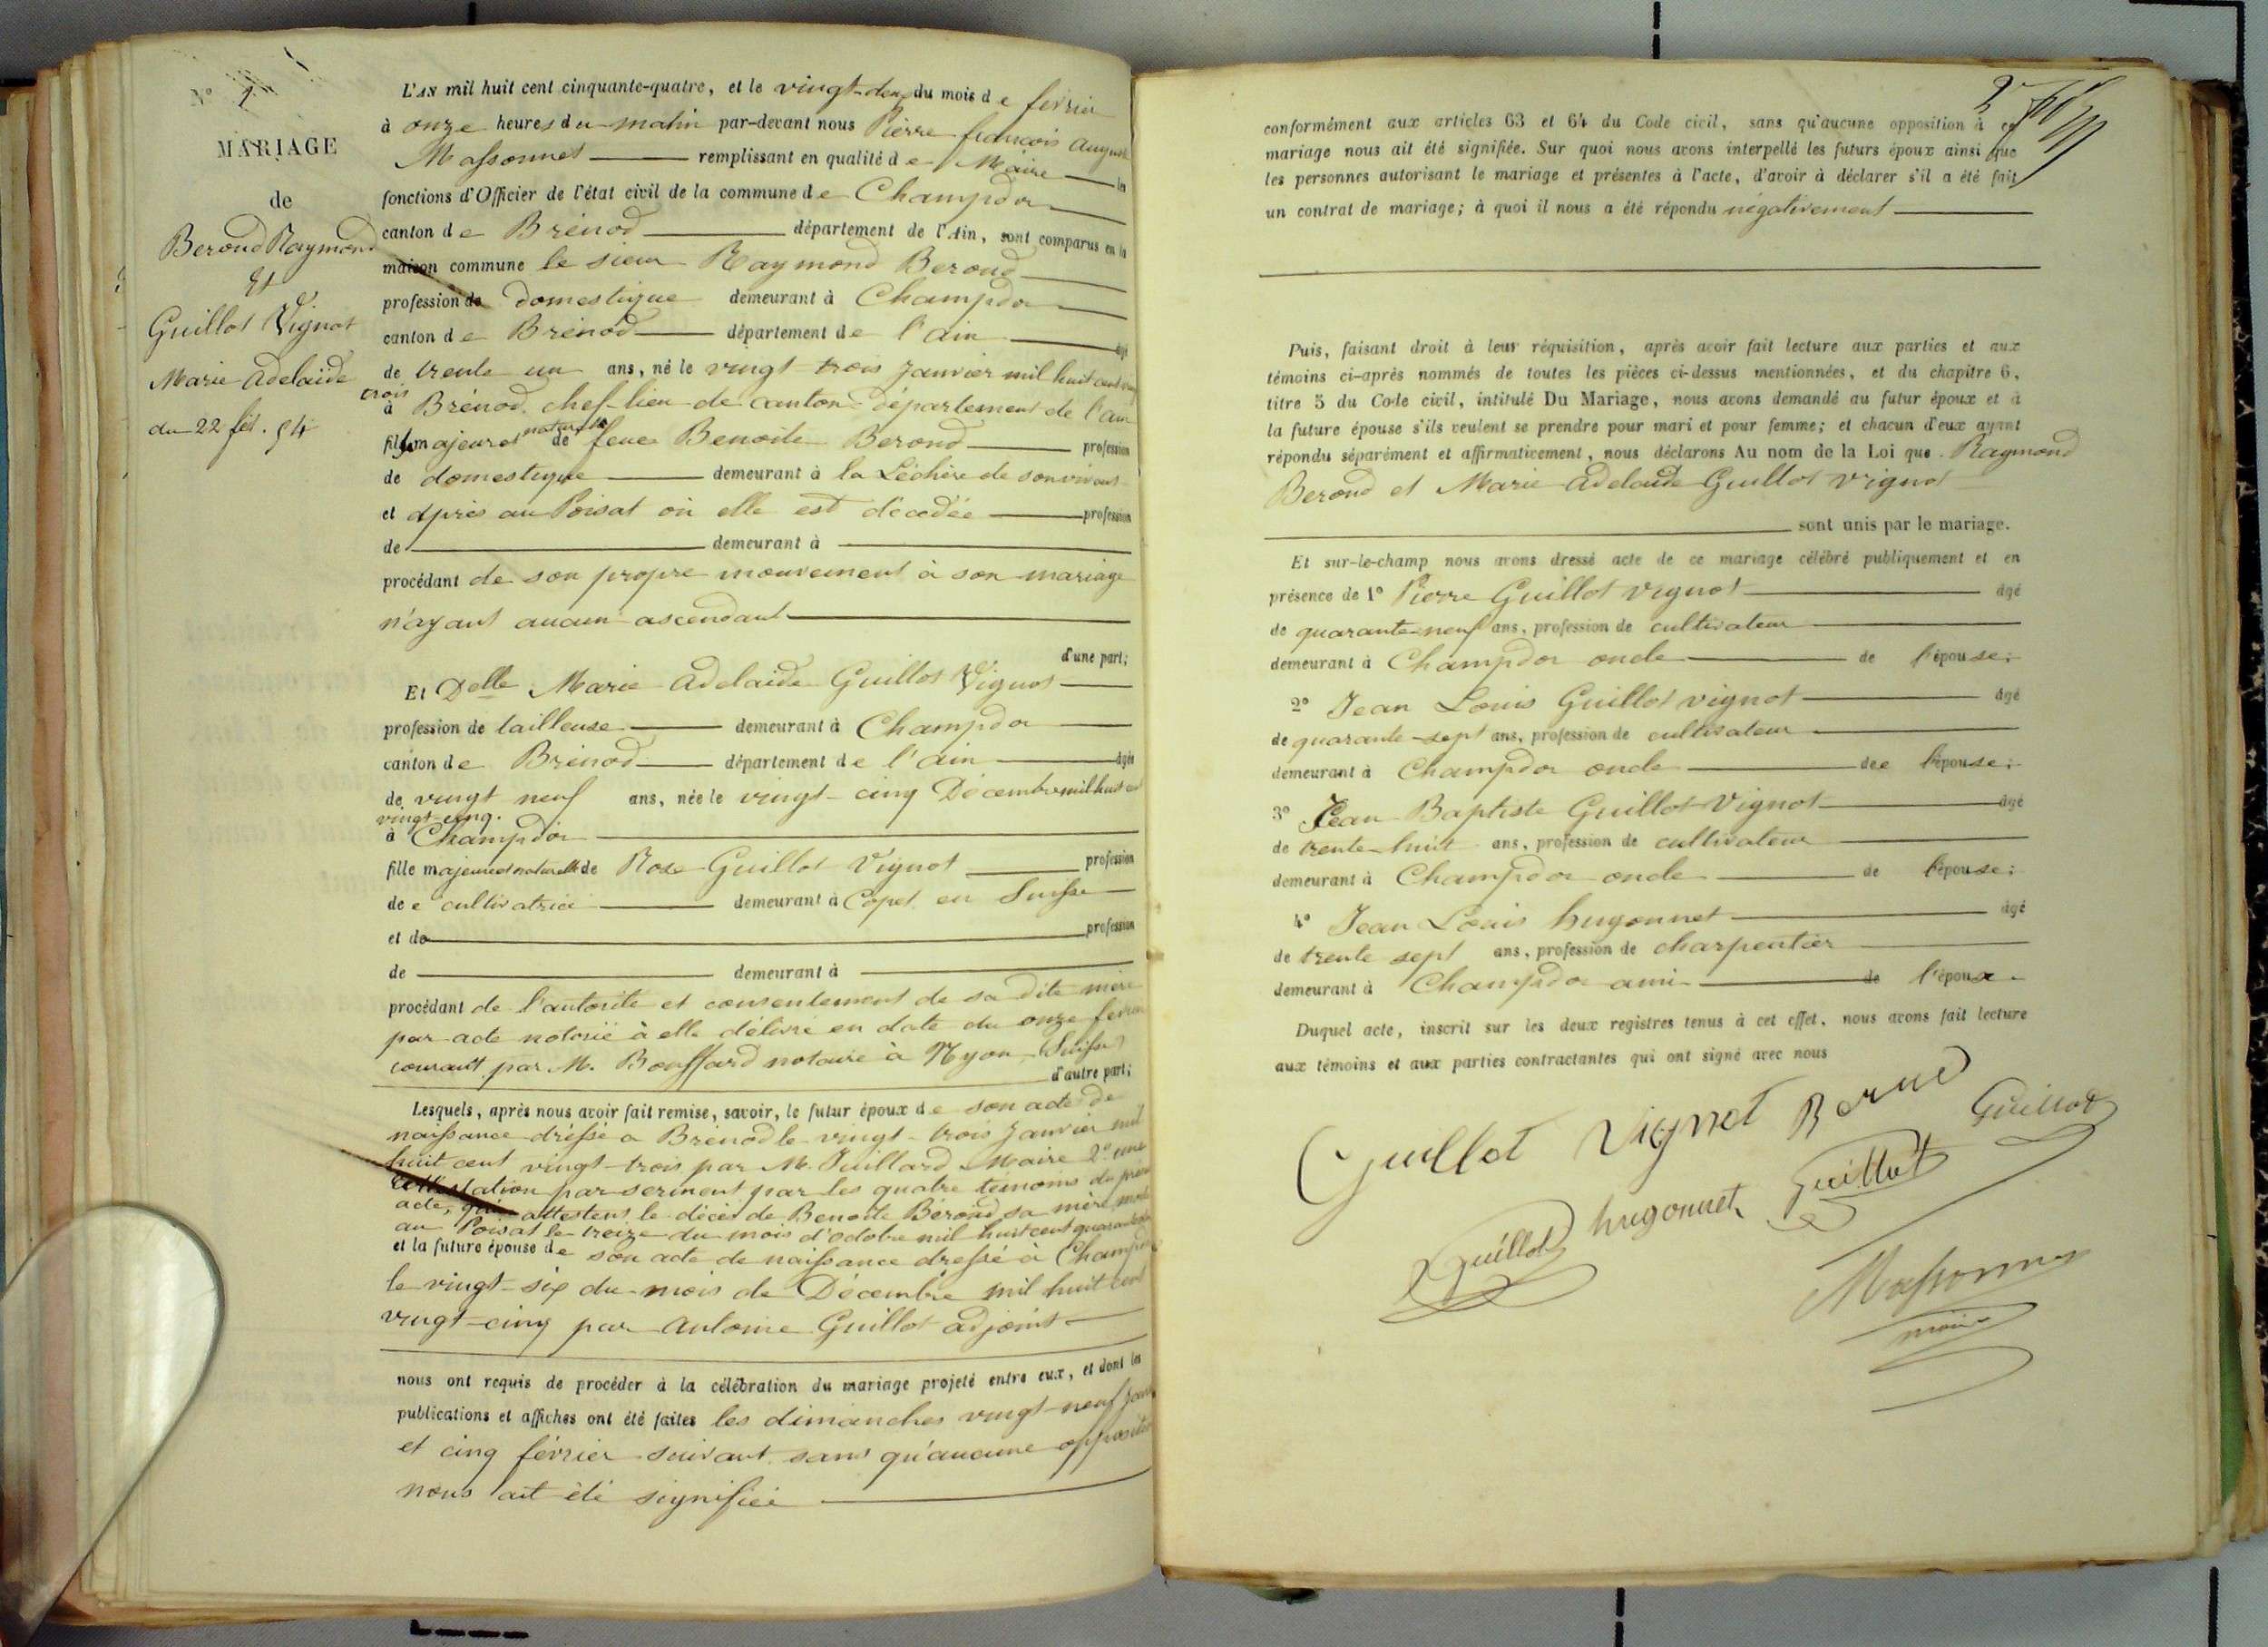 N° 1
MARIAGE
de
Beroud Raymond
Et
Guillot Vignot
Marie Adelaide
du 22 fév. 54
L'AN mil huit cent cinquante-quatre, et le vingt-deux du mois de février
à onze heures du matin par-devant nous Pierre françois Auguste
Massonnet remplissant en qualité de Maire les
fonctions d'Officier de l'état civil de la commune de Champdor
canton de Brénod département de l'Ain, sont comparus en la
maison commune le sieur Raymond Beroud
profession de domestique demeurant à Champdor
canton de Brénod département de l'ain âgé
de trente un ans, né le vingt trois Janvier mil huit cent vingt
trois
à Brénod chef-lieu de canton département de l'ain
fils majeur et naturel de feue Benoite Beroud profession
de domestique demeurant à la Léchère de son vivant
et après au Poisat où elle est décédée profession
de demeurant à
procédant de son propre mouvement à son mariage
n'ayant aucun ascendant
d'une part;
Et Delle Marie Adelaide Guillot Vignot
profession de tailleuse demeurant à Champdor
canton de Brénod département de l'ain âgée
de vingt neuf ans, née le vingt-cinq Décembre mil huit cent
vingt-cinq.
à Champdor
fille majeure et naturelle de Rose Guillot Vignot profession
de cultivatrice demeurant à Copet en Suisse
et de profession
de demeurant à
procédant de l'autorité et consentement de sa dite mère
par acte notorié à elle délivré en date du onze fevrier
courant par M. Bouffard notaire à Nyon (Suisse)
d'autre part;
Lesquels, après nous avoir fait remise, savoir, le futur époux de son acte de
naissance dréssé a Brénod le vingt-trois Janvier mil
huit cent vingt-trois par M. Juillard Maire 2° une
attestation par serment par les quatre témoins du présent
acte, qui attestent le décès de Benoite Béroud sa mère morte
au Poisat le treize du mois d'octobre mil huit cent quarante
et la future épouse de son acte de naissance dressé à Champdor
le vingt-six du mois de Décembre mil huit cent
vingt-cinq par Antoine Guillot adjoint
nous ont requis de procéder à la célébration du mariage projeté entre eux, et dont les
publications et affiches ont été faites les dimanches vingt-neuf Janv
et cinq février suivant sans qu'aucune opposition
nous ait été signifiée
conformément aux articles 63 et 64 du Code civil, sans qu'aucune opposition à ce
mariage nous ait été signifiée. Sur quoi nous avons interpellé les futurs époux ainsi que
les personnes autorisant le mariage et présentes à l'acte, d'avoir à déclarer s'il a été fait
un contrat de mariage; à quoi il nous a été répondu négativement
Puis, faisant droit à leur réquisition, après avoir fait lecture aux parties et aux
témoins ci-après nommés de toutes les pièces ci-dessus mentionnées, et du chapitre 6,
titre 5 du Code civil, intitulé Du Mariage, nous avons demandé au futur époux et à
la future épouse s'ils veulent se prendre pour mari et pour femme; et chacun d'eux ayant
répondu séparément et affirmativement, nous déclarons Au nom de la Loi que Raymond
Beroud et Marie Adelaide Guillot vignot
sont unis par le mariage.
Et sur-le-champ nous avons dressé acte de ce mariage célébré publiquement et en
présence de 1° Pierre Guillot vignot âgé
de quarante-neuf ans, profession de cultivateur
demeurant à Champdor oncle de l'épouse;
2° Jean Louis Guillot vignot âgé
de quarante-sept ans, profession de cultivateur
demeurant à Champdor oncle de l'épouse;
3° Jean Baptiste Guillot Vignot âgé
de trente-huit ans, profession de cultivateur
demeurant à Champdor oncle de l'épouse;
4° Jean Louis hugonnet âgé
de trente sept ans, profession de charpentier
demeurant à Champdor ami de l'époux
Duquel acte, inscrit sur les deux registres tenus à cet effet, nous avons fait lecture
aux témoins et aux parties contractantes qui ont signé avec nous
Guillot Vignot Beroud Guillot
Guillot hugonnet Guillot
Massonnet
maire